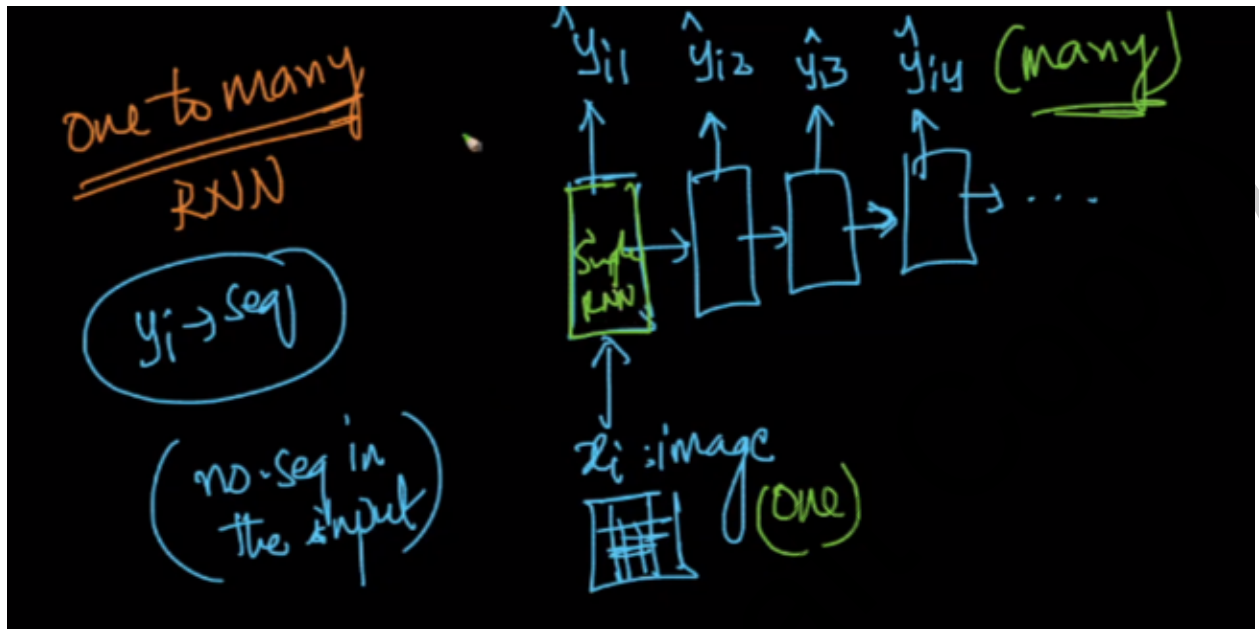 one to many
RNN
yi → seq
(no-seq in
the input)
ŷi1 ŷi2 ŷi3 ŷi4 (many)
Simple
RNN
....
xi : image
(one)